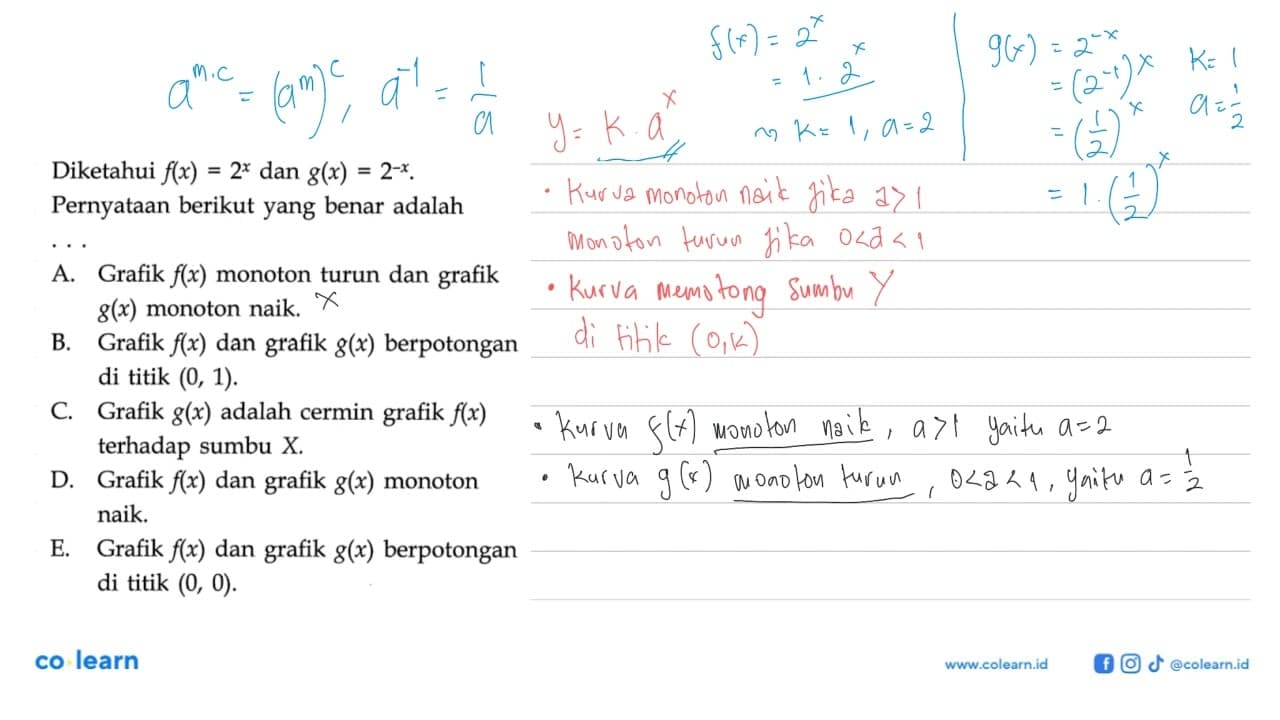 a^{m.c} = (a^m)^c, a^{-1} = 1/a
f(x) = 2^x
= 1. 2^x
⇝ k= 1, a=2
g(x) = 2^{-x}
= (2^{-1})^x
= (1/2)^x
= 1. (1/2)^x
k= 1
a= 1/2
y= k. a^x
Diketahui f(x) = 2^x dan g(x) = 2^{-x}.
Pernyataan berikut yang benar adalah
. . .
A. Grafik f(x) monoton turun dan grafik
g(x) monoton naik. ×
B. Grafik f(x) dan grafik g(x) berpotongan
di titik (0, 1).
C. Grafik g(x) adalah cermin grafik f(x)
terhadap sumbu X.
D. Grafik f(x) dan grafik g(x) monoton
naik.
E. Grafik f(x) dan grafik g(x) berpotongan
di titik (0, 0).
• Kurva monoton naik jika a>1
monoton turun jika 0<a<1
• Kurva memotong Sumbu Y
di titik (0,k)
• Kurva f(x) monoton naik, a>1 yaitu a=2
• Kurva g(x) monoton turun, 0<a<1, yaitu a= 1/2
co learn
www.colearn.id
@colearn.id